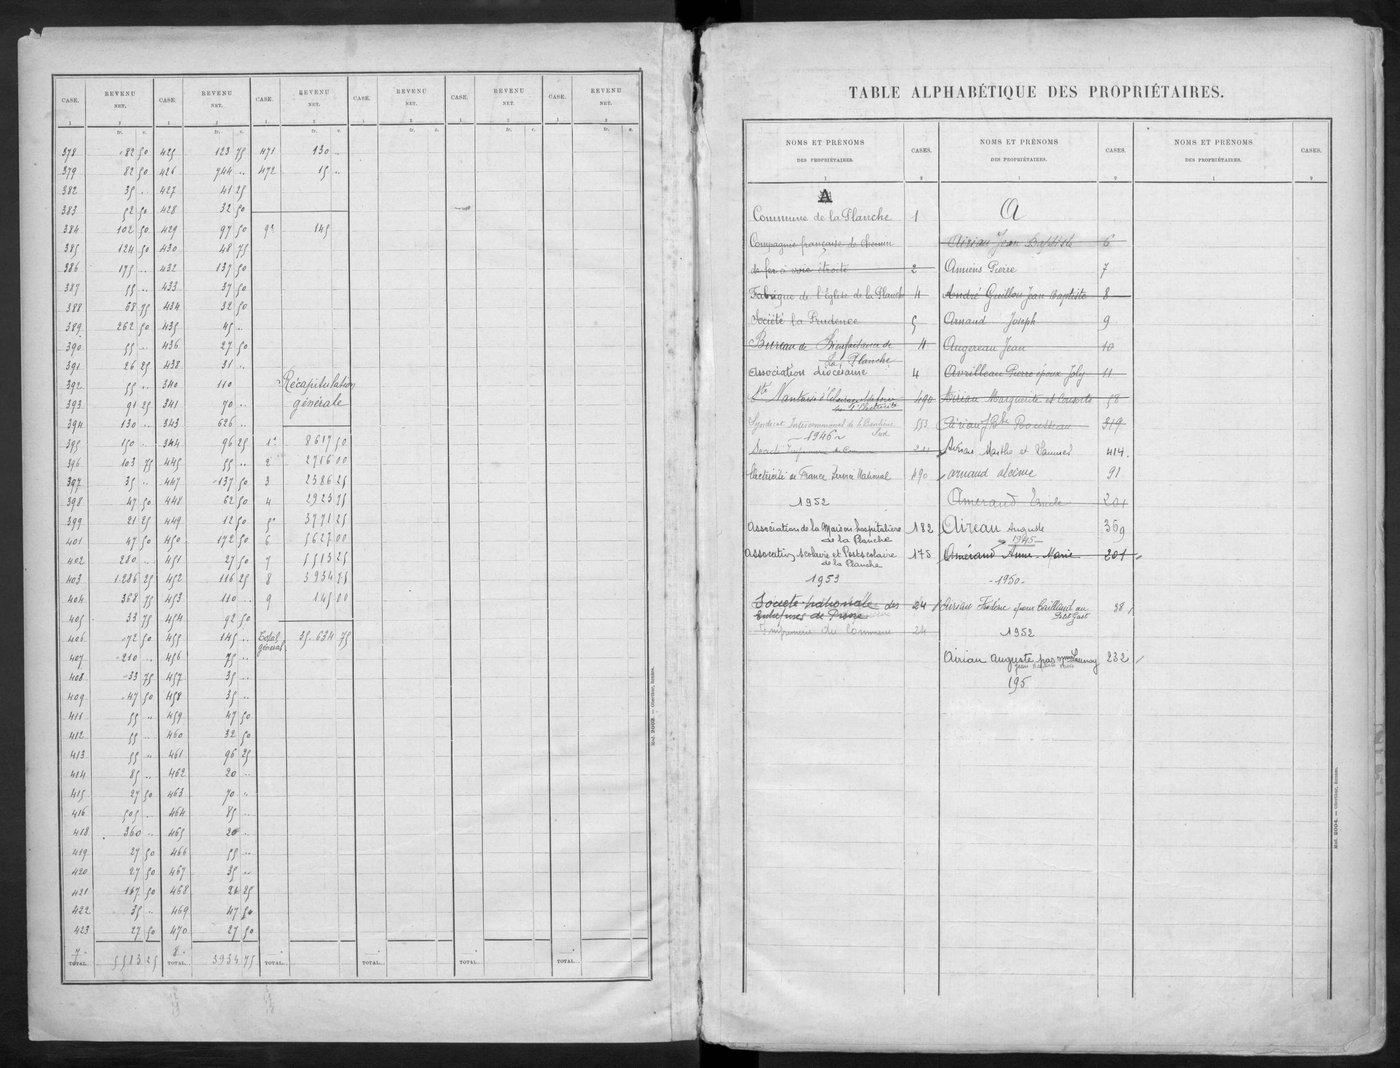 CASE. REVENU NET. CASE. REVENU NET. CASE. REVENU NET. CASE. REVENU NET. CASE. REVENU NET. CASE. REVENU NET.
1 2 1 2 1 2 1 2 1 2 1 2
fr. c. fr. c. fr. c. fr. c. fr. c. fr. c.
378 82 50 425 123 75 471 130 ..
379 82 50 426 744 .. 472 15 ..
382 35 .. 427 41 25
383 52 50 428 32 50
384 102 50 429 97 50 9e 145
385 124 50 430 48 75
386 175 .. 432 137 50
387 55 .. 433 37 50
388 68 75 434 32 50
389 262 50 435 45 ..
390 55 .. 436 27 50
391 26 25 438 31 ..
392 55 .. 340 110 Récapitulation
393 91 25 341 70 .. générale
394 130 .. 343 626 ..
395 150 .. 344 96 25 1e 8617 50
396 103 75 445 55 .. 2 2716 00
397 35 .. 447 137 50 3 2386 25
398 47 50 448 62 50 4 2923 75
399 21 25 449 12 50 5e 3771 25
401 47 50 450 172 50 6 5627 00
402 280 .. 451 27 50 7 5513 25
403 1.286 25 452 116 25 8 3934 75
404 368 75 453 110 .. 9 145 00
405 33 75 454 92 50
406 72 50 455 145 .. Total général 35.634 75
407 210 .. 456 75 ..
408 33 75 457 35 ..
409 47 50 458 35 ..
411 55 .. 459 47 50
412 55 .. 460 32 50
413 55 .. 461 96 25
414 85 .. 462 20 ..
415 27 50 463 70 ..
416 505 .. 464 85 ..
418 360 .. 465 20 ..
419 27 50 466 55 ..
420 27 50 467 35 ..
421 117 50 468 21 25
422 35 .. 469 47 50
423 27 50 470 27 50
7e TOTAL. 5513 25 8e TOTAL. 3934 75 TOTAL. TOTAL. TOTAL. TOTAL.
Mod. 2003. — Oberthur, Rennes.
TABLE ALPHABÉTIQUE DES PROPRIÉTAIRES.
NOMS ET PRÉNOMS DES PROPRIÉTAIRES. CASES. NOMS ET PRÉNOMS DES PROPRIÉTAIRES. CASES. NOMS ET PRÉNOMS DES PROPRIÉTAIRES. CASES.
1 2 1 2 1 2
A
Commune de la Planche 1
Compagnie française de chemin
de fer à voie étroite 2
Fabrique de l'Église de la Planche 4
Société la Prudence 5
Bureau de Bienfaisance de 4
la Planche
Association diocésaine 4
490
Syndicat Intercommunal de
1946 553
Électricité de France Service National 490
1952
Association de la Maison hospitalière 182
de la Planche
Association scolaire et Postscolaire 175
de la Planche
1953
Société nationale des 24
Entreprises de Presse
Imprimerie du Commerce 24
A
Airiau Jean Baptiste 6
Amiens Pierre 7
André Guillou Jean Baptiste 8
Arnaud Joseph 9
Augereau Jean 10
Avrilleau Pierre époux Joly 11
Airiau Marguerite et Consorts 58
319
Airiau Marthe et 414
arnaud 91
Améraud Émile 201
Aireau Auguste 369
1945
Amérand Anne-Marie 201
1950
38
1952
Airiau Auguste par Mme Launay 232
195
Mod. 2004. — Oberthur, Rennes.